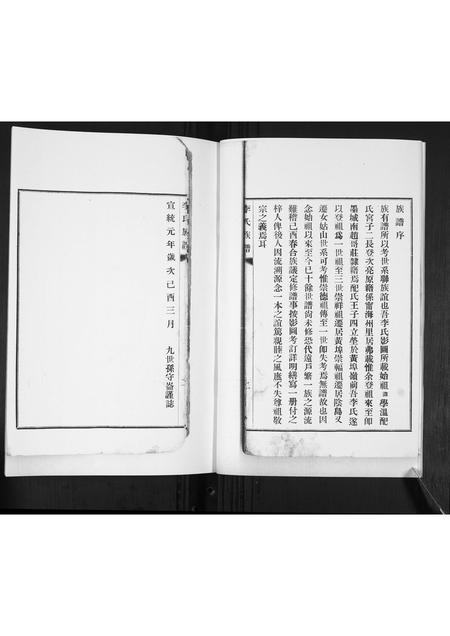 族譜序
族有譜所以考世系聯族誼也吾李氏影圖所載始祖諱學溫配
氏宮子二長登次亮原籍係甯海州里居弗載惟余登祖來至即
墨城南趙哥莊隸籍焉配氏王子四立塋於黃埠嶺前吾李氏遂
以登祖為一世祖至三世崇祥祖遷居黃埠崇福祖遷居陰島又
遷女姑山世系可考惟崇德祖傳至一世即失考焉無譜故也因
念始祖以來至今已十餘世譜尚未修恐代遠戶繁一族之源流
難稽己酉春合族議定修譜事按影圖考訂詳明繕寫一册付之
梓人俾後人因流溯源念一本之誼篤親睦之風庶不失尊祖敬
宗之義焉耳
李氏族譜
李氏族譜
宣統元年歲次己酉三月
九世孫守崙謹誌